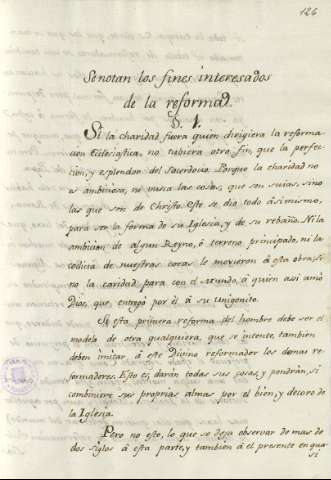 126
Se notan los fines interesados
de la reformad.
§. 1.
Si la charidad fuera quien dirigiera la reforma-
cion Eclesiastica, no tubiera otro fin, que la perfec-
cion, y esplendor del Sacerdocio. Porque la charidad no
es ambiciosa, ni busca las cosas, que son suias, sino
las que son de Christo. Este se dio todo á si mismo,
para ser la forma de su Iglesia, y de su rebaño. Ni la
ambicion de algun Reyno, ó terreno principado, ni la
codicia de nuestras cosas le movieron á esta obra, si
no la caridad para con el Mundo, á quien assi amó
Dios, que entregó por él á su Unigenito.
Si esta primera reforma del hombre debe ser el
modelo de otra qualquiera, que se intente, tambien
deben imitar á este Divino reformador los demas re-
formadores. Esto es, darán todas sus cosas, y pondrán, si
combiniere sus proprias almas por el bien, y decoro de
la Iglesia.
Pero no esto, lo que se deja observar de mas de
dos siglos á esta parte, y tambien á el presente en qua-
si